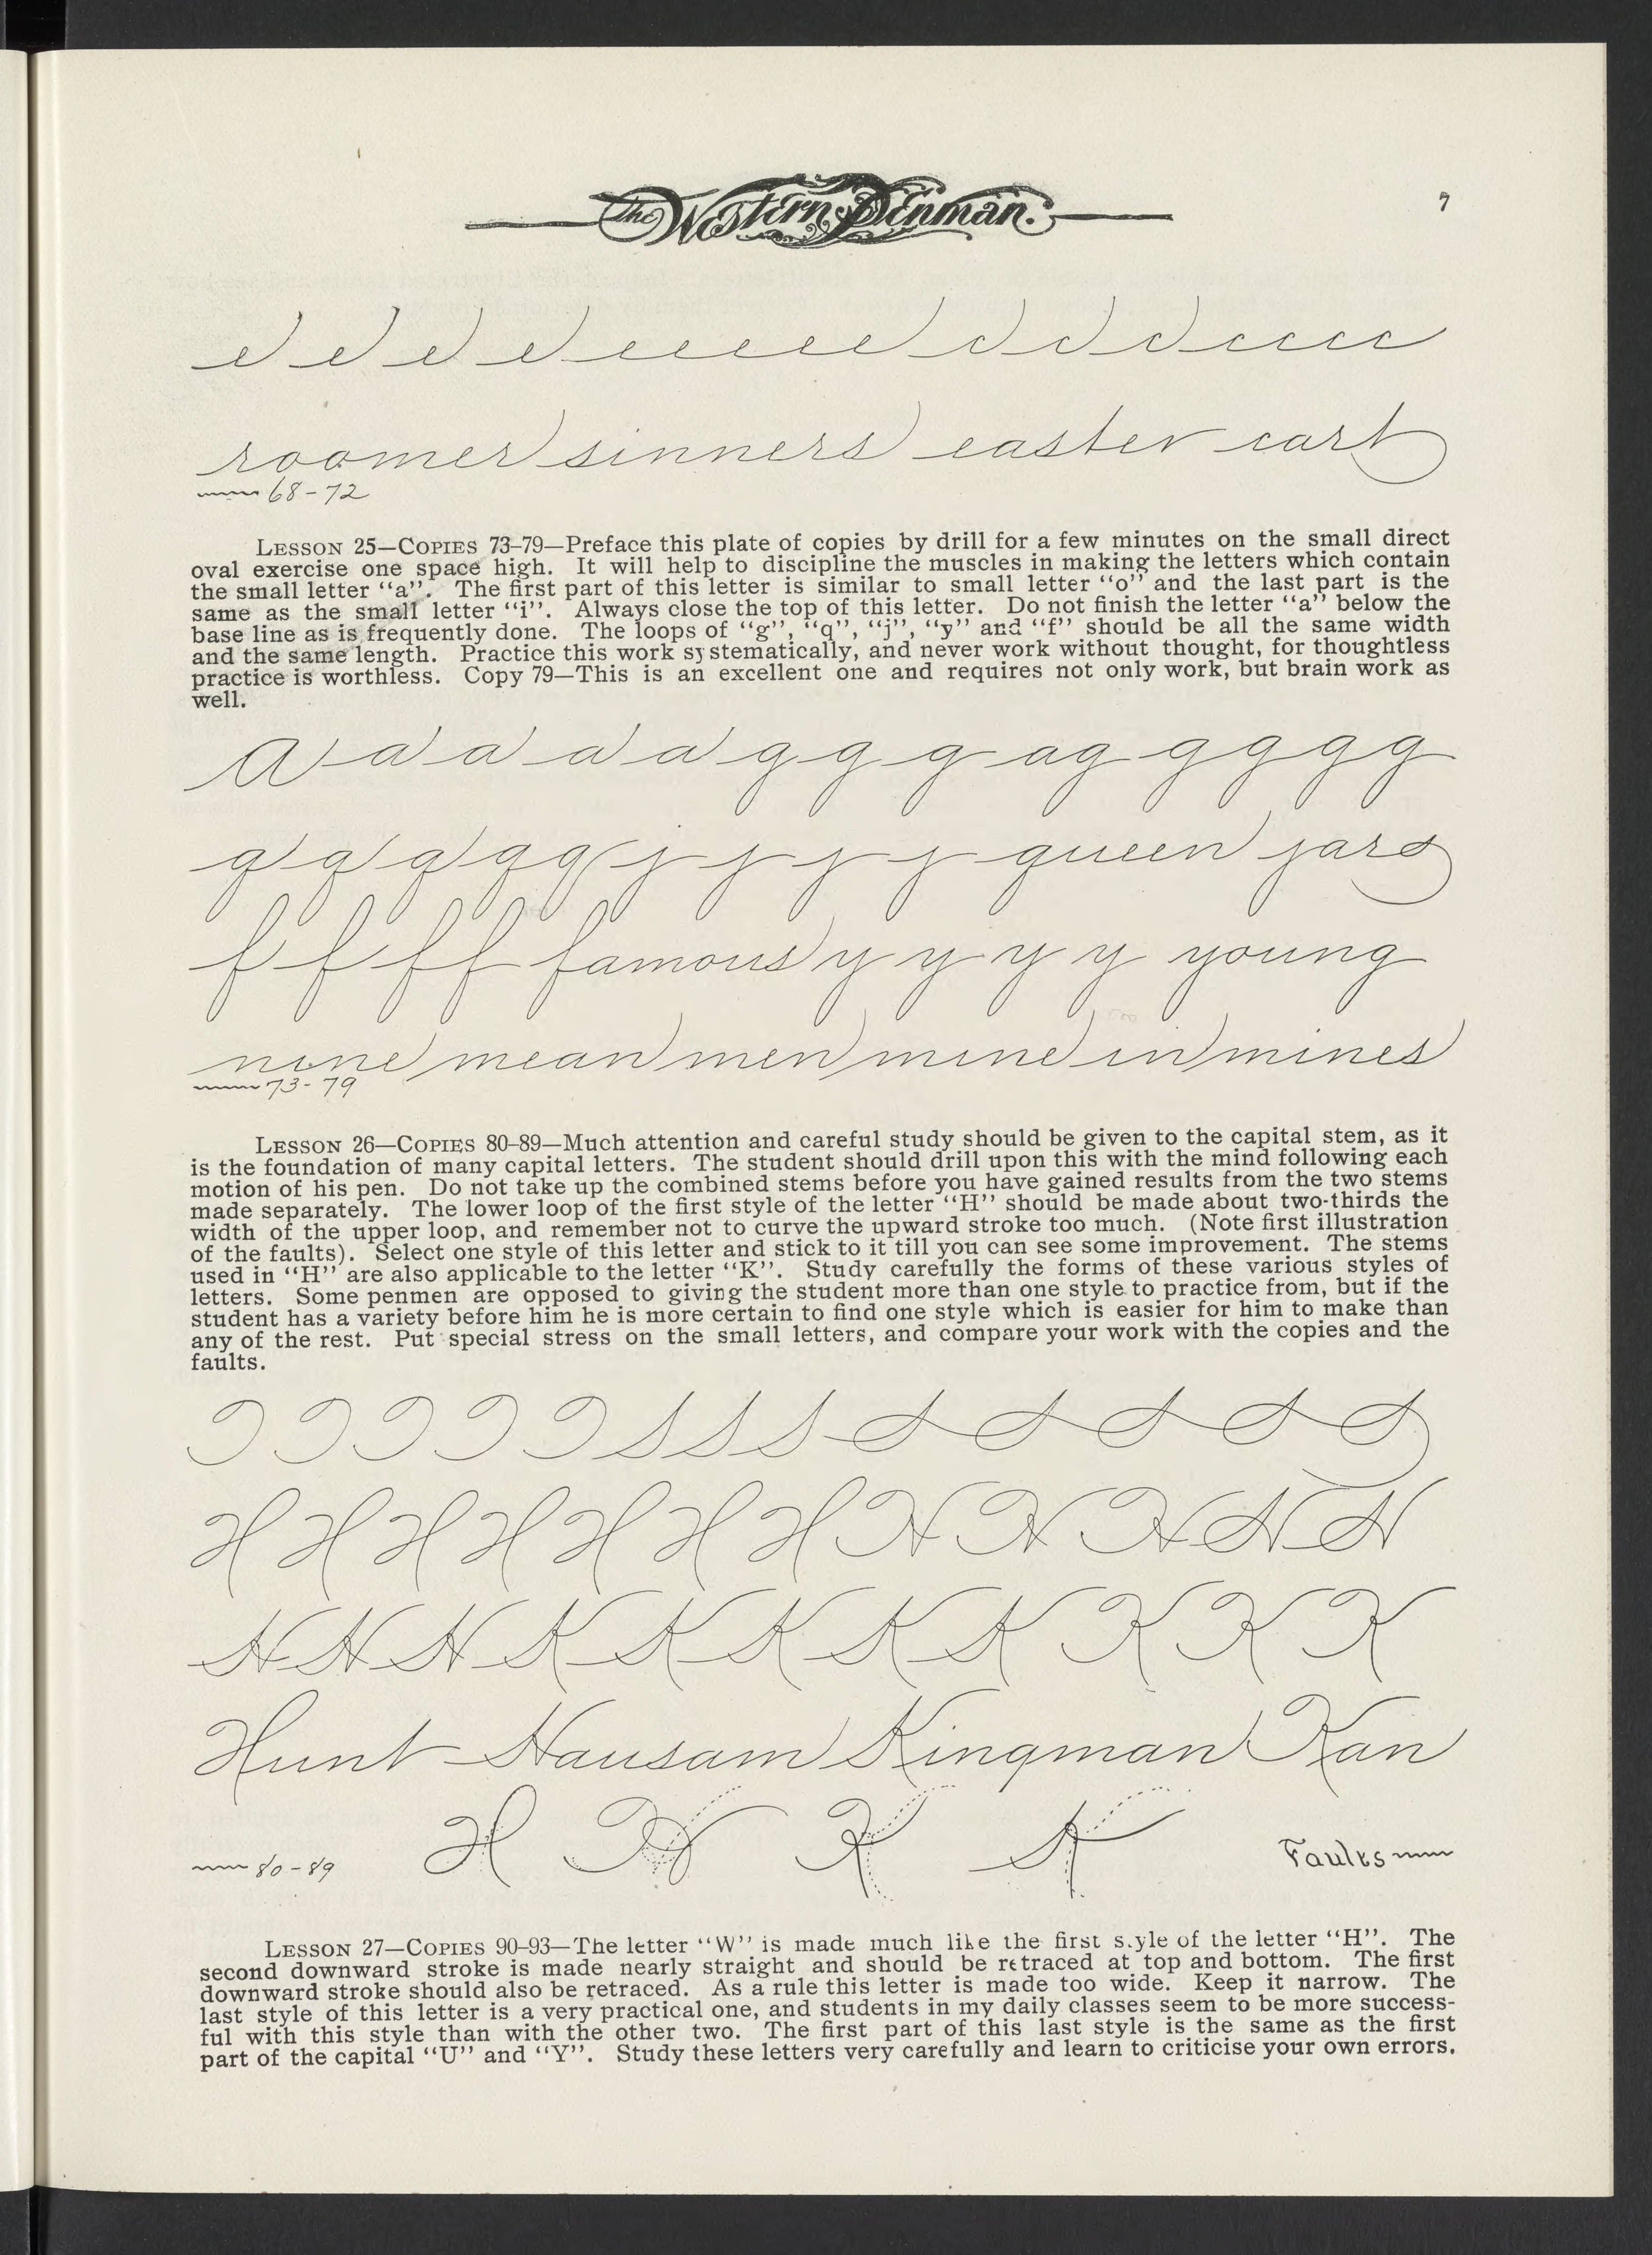 The Western Penman.
7
e e e e e e e e e c c c c c c c
roomer sinners easter cart
68-72
LESSON 25—COPIES 73-79—Preface this plate of copies by drill for a few minutes on the small direct
oval exercise one space high. It will help to discipline the muscles in making the letters which contain
the small letter "a". The first part of this letter is similar to small letter "o" and the last part is the
same as the small letter "i". Always close the top of this letter. Do not finish the letter "a" below the
base line as is frequently done. The loops of "g", "q", "j", "y" and "f" should be all the same width
and the same length. Practice this work systematically, and never work without thought, for thoughtless
practice is worthless. Copy 79—This is an excellent one and requires not only work, but brain work as
well.
a a a a a g g g ag g g g g
q q q q q j j j j queen jars
f f f f famous y y y y young
nine mean men mine in mines
73-79
LESSON 26—COPIES 80-89—Much attention and careful study should be given to the capital stem, as it
is the foundation of many capital letters. The student should drill upon this with the mind following each
motion of his pen. Do not take up the combined stems before you have gained results from the two stems
made separately. The lower loop of the first style of the letter "H" should be made about two-thirds the
width of the upper loop, and remember not to curve the upward stroke too much. (Note first illustration
of the faults). Select one style of this letter and stick to it till you can see some improvement. The stems
used in "H" are also applicable to the letter "K". Study carefully the forms of these various styles of
letters. Some penmen are opposed to giving the student more than one style to practice from, but if the
student has a variety before him he is more certain to find one style which is easier for him to make than
any of the rest. Put special stress on the small letters, and compare your work with the copies and the
faults.
H H H H H H H H H H H H
H H H K K K K K K K K
Hunt Hausam Kingman Kan
80-89 H H K K Faults
LESSON 27—COPIES 90-93—The letter "W" is made much like the first style of the letter "H". The
second downward stroke is made nearly straight and should be retraced at top and bottom. The first
downward stroke should also be retraced. As a rule this letter is made too wide. Keep it narrow. The
last style of this letter is a very practical one, and students in my daily classes seem to be more success-
ful with this style than with the other two. The first part of this last style is the same as the first
part of the capital "U" and "Y". Study these letters very carefully and learn to criticise your own errors.